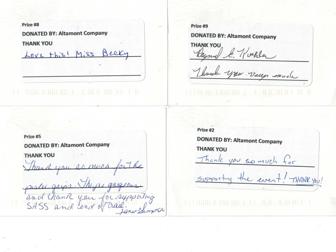 Prize #8
DONATED BY: Altamont Company
THANK YOU
Love this! Miss Becky
Prize #9
DONATED BY: Altamont Company
THANK YOU
Thank you very much
Prize #5
DONATED BY: Altamont Company
THANK YOU
Thank you so much for the
and thank you for supporting
SASS and
Prize #2
DONATED BY: Altamont Company
THANK YOU
Thank you so much for
supporting the event! THANK YOU!